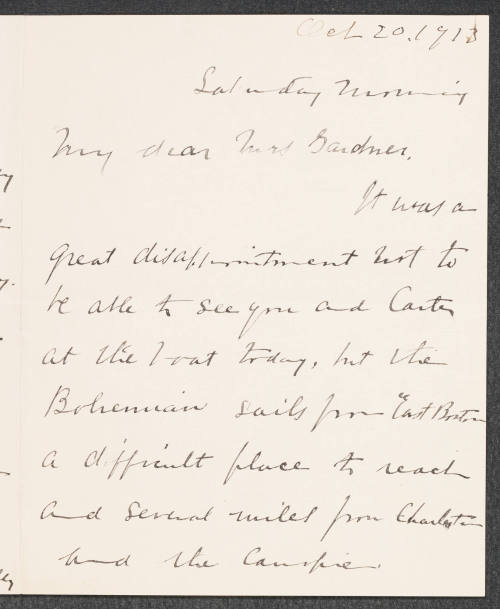 Oct 20. 1913
Saturday Morning
My dear Mrs Gardner,
It was a
great disappointment not to
be able to see you and Carter
at the boat today, but the
Bohemian sails from East Boston
a difficult place to reach
and several miles from Charlestown
and the